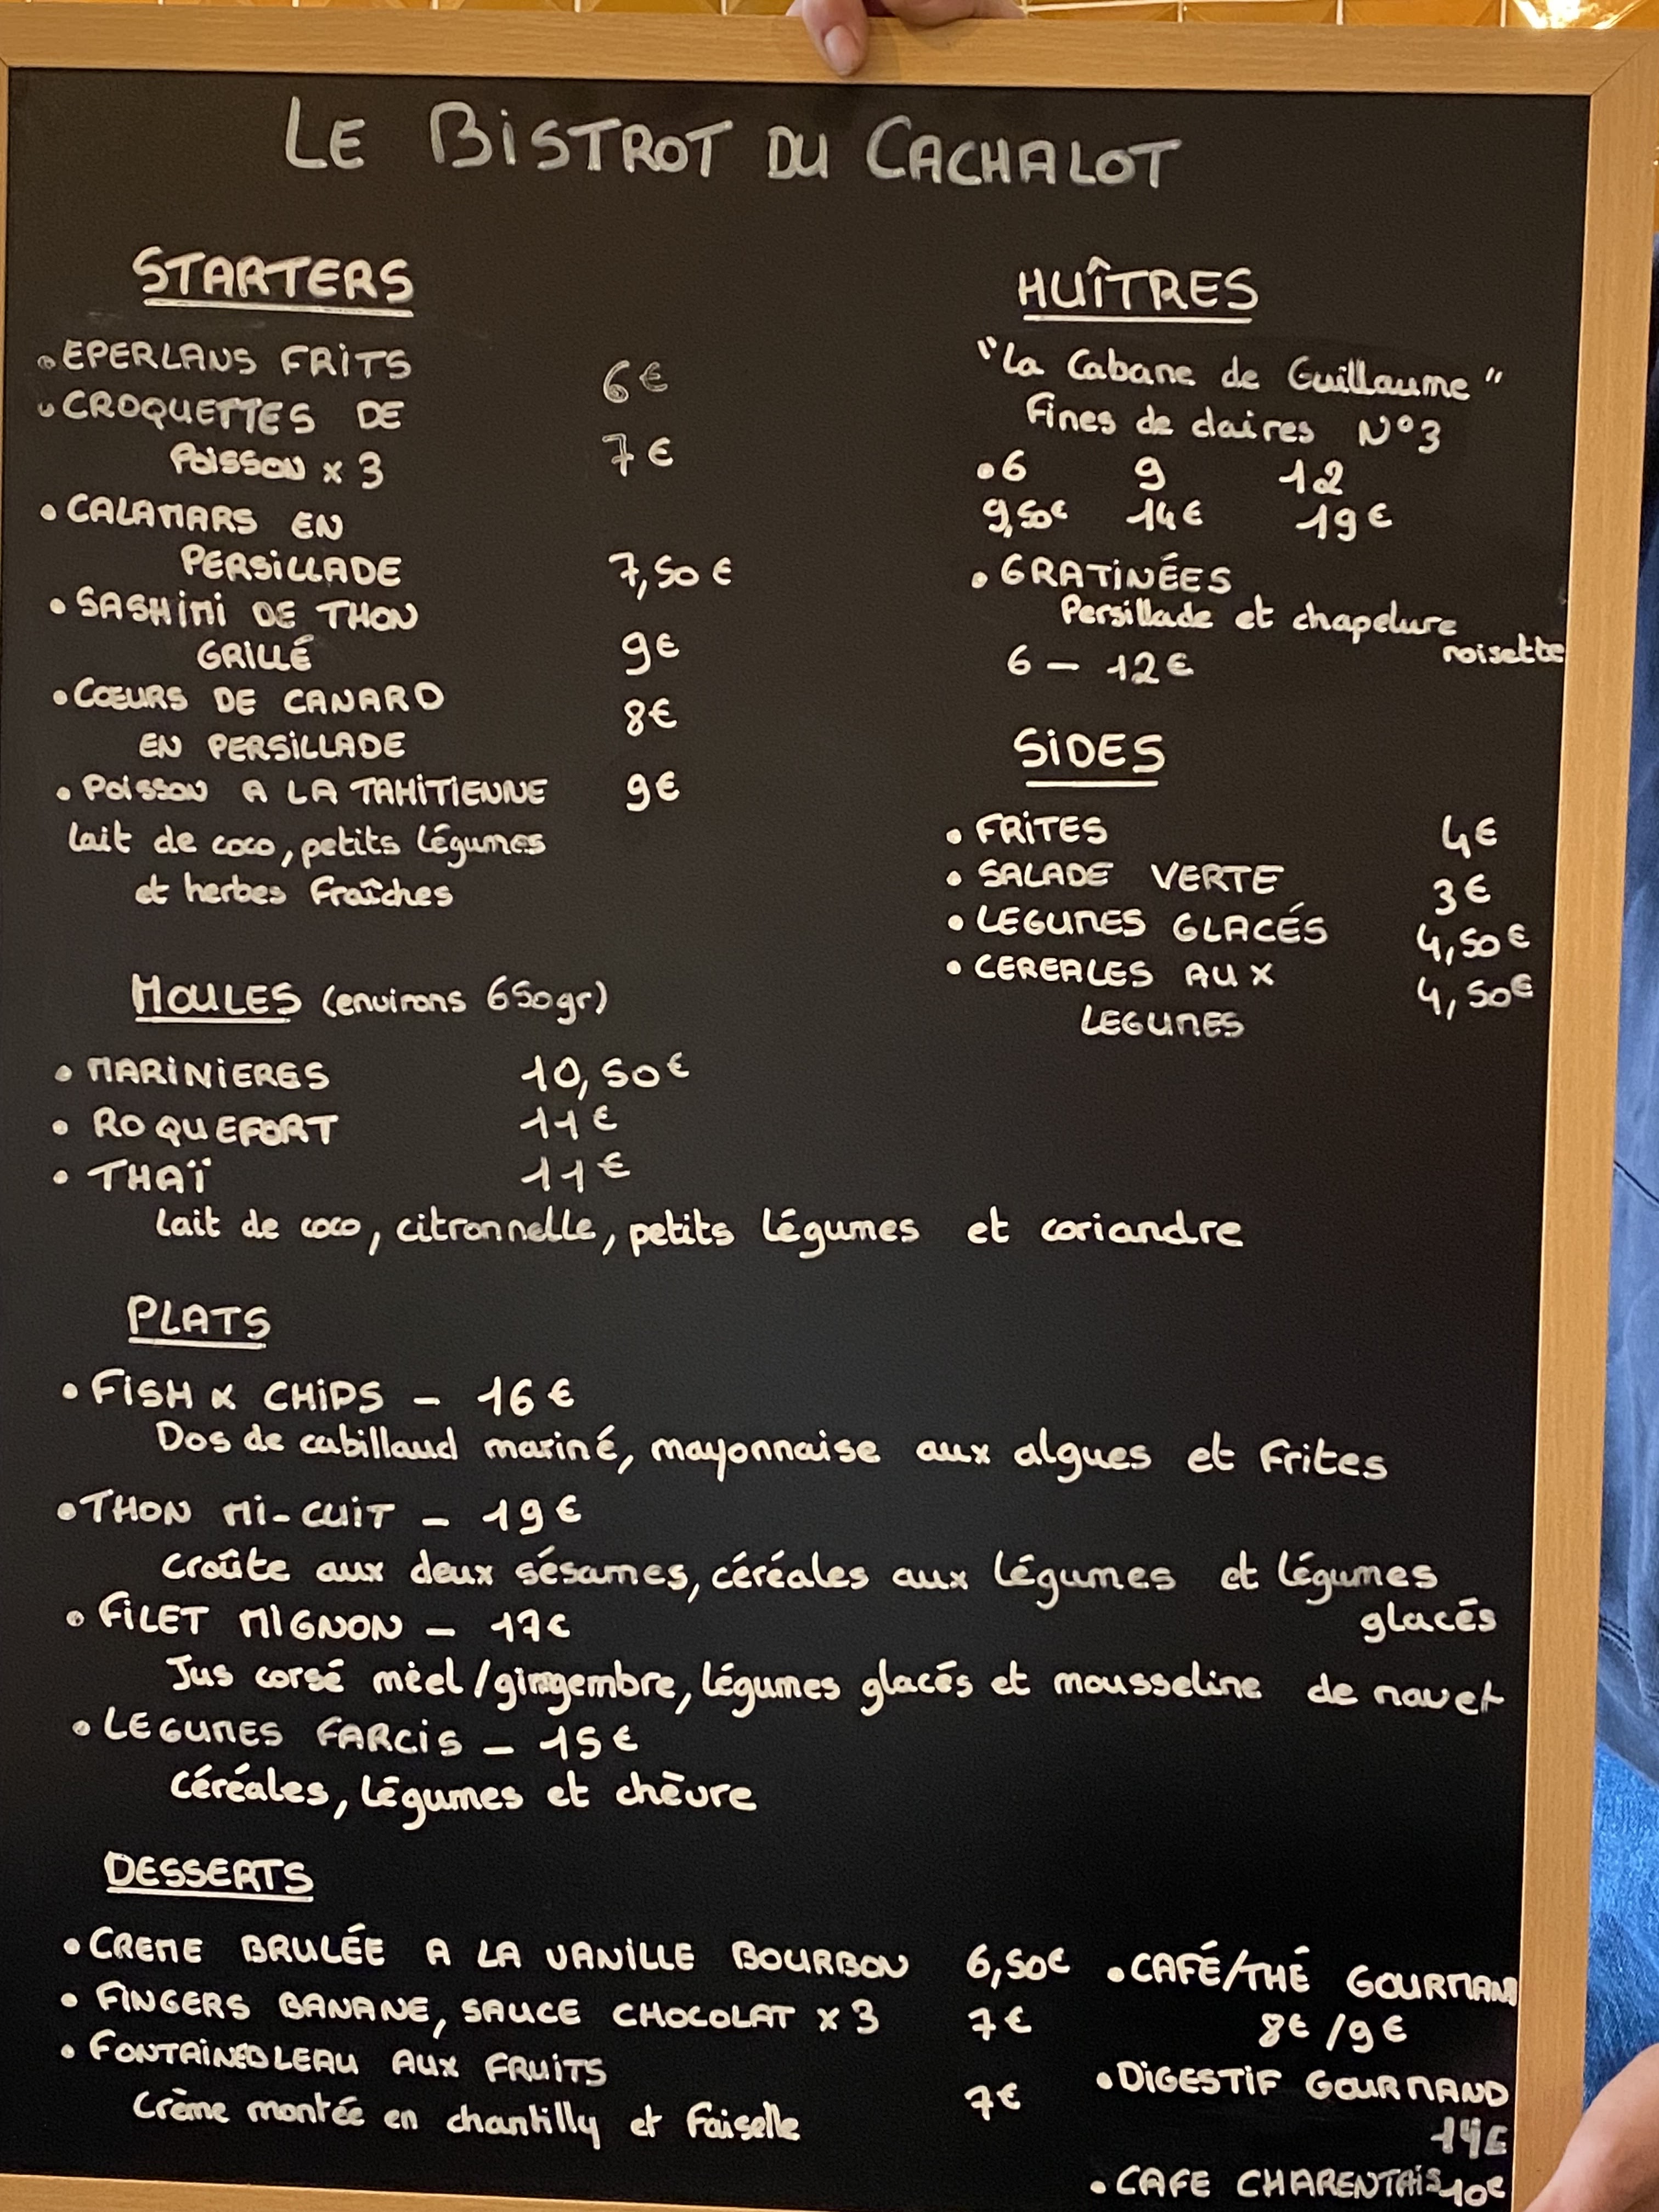 LE BISTROT DU CACHALOT
STARTERS
• EPERLANS FRITS 6€
• CROQUETTES DE
POISSON x 3 7€
• CALAMARS EN
PERSILLADE 7,50€
• SASHIMI DE THON
GRILLÉ 9€
• CŒURS DE CANARD 8€
EN PERSILLADE
• POISSON A LA TAHITIENNE 9€
lait de coco, petits légumes
et herbes fraîches
HUÎTRES
"La Cabane de Guillaume"
Fines de claires N°3
• 6 9 12
9,50€ 14€ 19€
• GRATINÉES
Persillade et chapelure
noisette
6 – 12€
SIDES
• FRITES 4€
• SALADE VERTE 3€
• LEGUMES GLACÉS 4,50€
• CEREALES AUX 4,50€
LEGUMES
MOULES (environs 650gr)
• MARINIERES 10,50€
• ROQUEFORT 11€
• THAÏ 11€
lait de coco, citronnelle, petits légumes et coriandre
PLATS
• FISH & CHIPS – 16€
Dos de cabillaud mariné, mayonnaise aux algues et frites
• THON MI-CUIT – 19€
croûte aux deux sésames, céréales aux légumes et légumes
glacés
• FILET MIGNON – 17€
Jus corsé mièl/gingembre, légumes glacés et mousseline de navet
• LEGUMES FARCIS – 15€
céréales, légumes et chèvre
DESSERTS
• CREME BRULÉE A LA VANILLE BOURBON 6,50€
• FINGERS BANANE, SAUCE CHOCOLAT x 3 7€
• FONTAINEBLEAU AUX FRUITS
Crème montée en chantilly et faiselle 7€
• CAFÉ/THÉ GOURMAND
8€ / 9€
• DIGESTIF GOURMAND
14€
• CAFE CHARENTAIS 10€